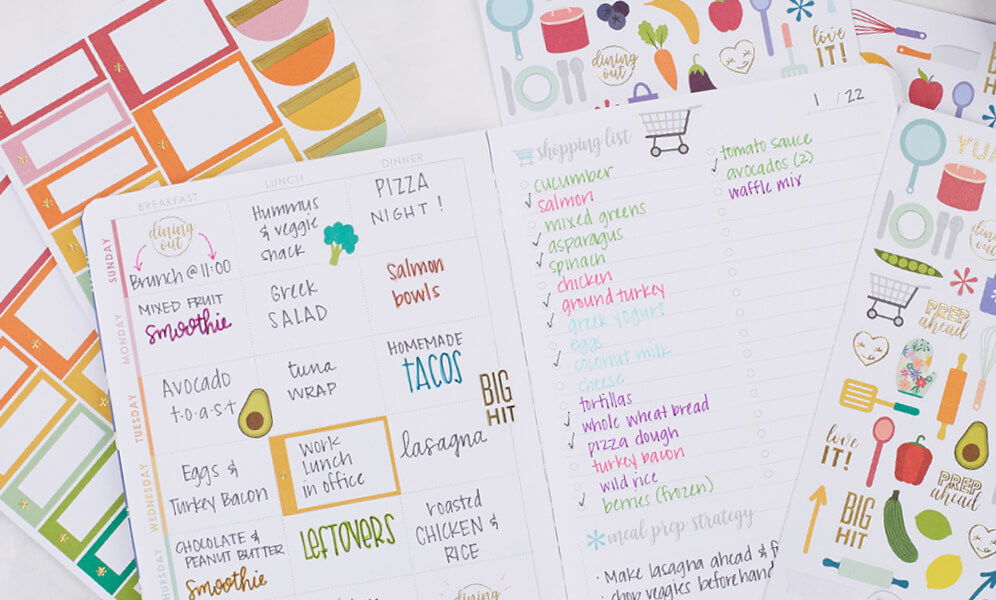 dining
out
love
IT!
1 / 22
shopping list
cucumber
salmon
mixed greens
asparagus
spinach
chicken
ground turkey
greek yogurt
eggs
coconut milk
cheese
tortillas
whole wheat bread
pizza dough
turkey bacon
wild rice
berries (frozen)
tomato sauce
avocados (2)
waffle mix
meal prep strategy
· Make lasagna ahead & f
· chop veggies beforehand
BREAKFAST
LUNCH
DINNER
SUNDAY
dining
out
Brunch @ 11:00
Hummus
& veggie
snack
PIZZA
NIGHT!
MONDAY
MIXED FRUIT
Smoothie
Greek
SALAD
Salmon
bowls
TUESDAY
Avocado
toast
tuna
WRAP
HOMEMADE
TACOS
BIG
HIT
WEDNESDAY
Eggs &
Turkey Bacon
work
lunch
in office
lasagna
THURSDAY
CHOCOLATE &
PEANUT BUTTER
Smoothie
LEFTOVERS
roasted
CHICKEN &
RICE
dining
YUM
dining
PREP
ahead
love
IT!
PREP
ahead
BIG
HIT